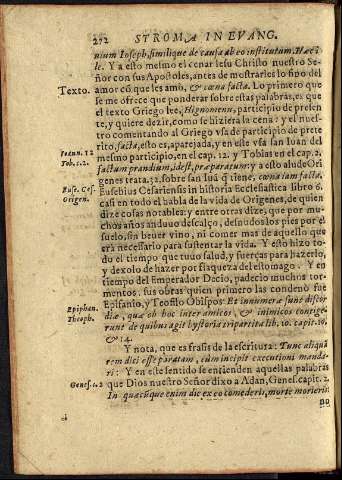 272 STROMA IN EVANG.
nium Ioseph, similique de causa ab eo institutum. Hæc i
le. Y a esto mesmo el cenar Iesu Christo nuestro Se-
ñor con sus Apostoles, antes de mostrarles lo fino del
Texto. amor cõ que les amò, & cœna facta. Lo primero que
se me ofrece que ponderar sobre estas palabras, es que
el texto Griego lee, participio de presen-
te, y quiere dezir, como se hiziera la cena: y el nues-
tro comentando al Griego vsa de participio de prete
rito, facta, esto es, aparejada, y en este vsa san Iuan del
Ioann. 12 mesmo participio, en el cap. 12. y Tobias en el cap. 2.
Tob. c. 2. factum prandium, idest, præparatum: y a esto alude Ori
genes trata. 32. sobre san Iuã q̃ tiene, cœna iam facta.
Euse. Ces. Eusebius Cesariensis in historia Ecclesiastica libro 6.
Origen. casi en todo el habla de la vida de Origenes, de quien
dize cosas notables: y entre otras dize, que por mu-
chos años anduuo descalço, desnudos los pies por el
suelo, sin beuer vino, ni comer mas de aquello que
erà necessario para sustentar la vida. Y esto hizo to-
do el tiempo que tuuo salud, y fuerças para hazerlo,
y dexolo de hazer por flaqueza del estomago. Y en
tiempo del Emperador Dacio, padecio muchos tor-
mentos. sus obras quien primero las condenò fue
Epiphan. Epifanio, y Teofilo Obispos: Et innumeræ sunt discor
Theoph. diæ, quæ ob hoc inter amicos, & inimicos contige-
runt de quibus agit hystoria tripartita lib. 10. capit. 10,
& 14.
Y nota, que es frasis de la escritura: Tunc aliquã
rem dici esse paratam, cùm incipit executioni manda
ri: Y en este sentido se entienden aquellas palabras
Genes. c. 2 que Dios nuestro Señor dixo a Adan, Genes. capit. 2.
In quacũque enim die ex eo comederis, morte morieris